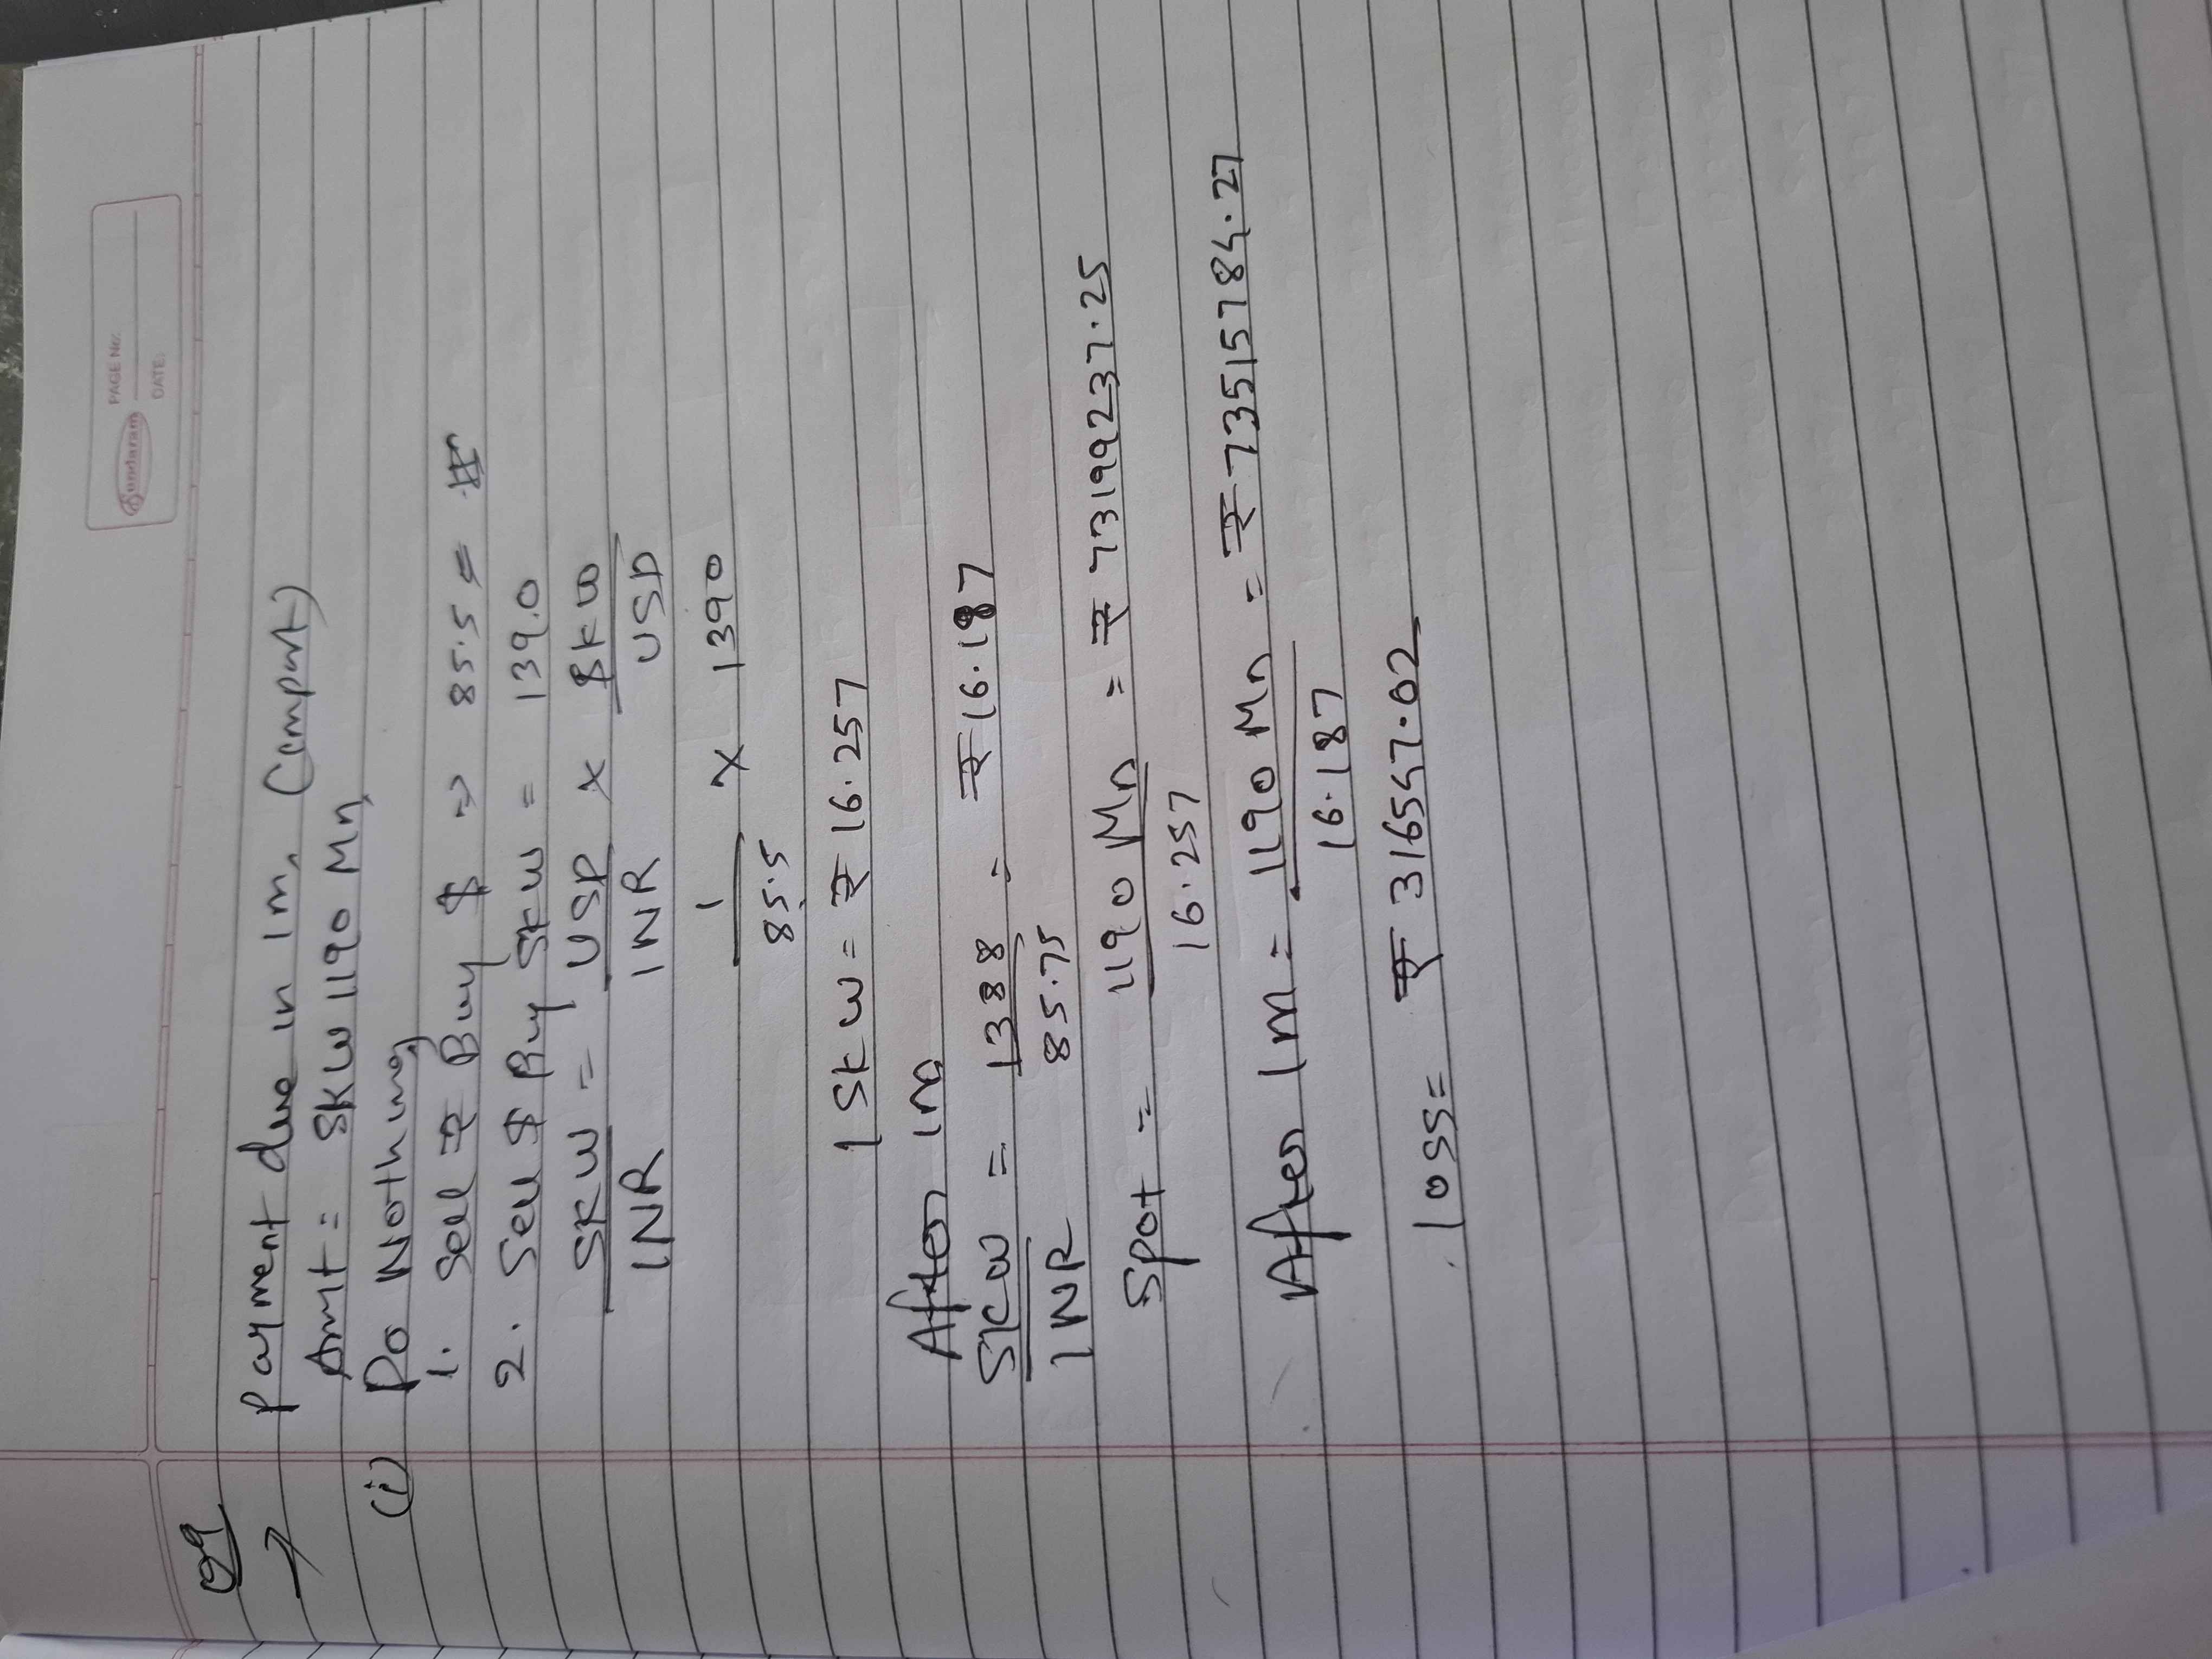 Sundaram
PAGE No:
DATE:
Q9
→ Payment due in 1m, (import)
Amt = SKW 1190 Mn
(i) Do Nothing
1. Sell ₹ Buy $ ⇒ 85.5 =
2. Sell $ Buy SKW = 139.0
SKW = USD × SKW
INR INR USD
1 × 1390
85.5
1 SKW = ₹ 16.257
After 1m
SKW = 1388 = ₹ 16.187
INR 85.75
Spot = 1190 Mn = ₹ 73199237.25
16.257
After 1m = 1190 Mn = ₹ 73515784.27
16.187
loss = ₹ 316547.02